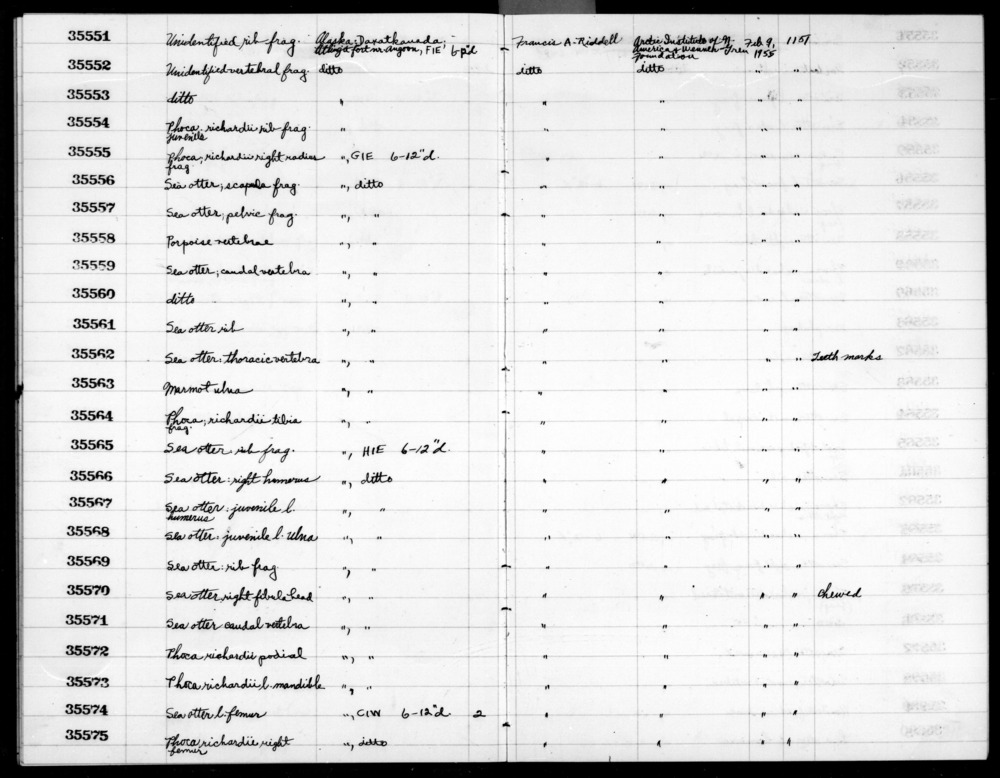 35551 Unidentified rib frag. Alaska: Daxatkanada: Francis A. Riddell Arctic Institute of N. Feb 9, 1157
Village fort nr. Angoon, FIE' 6-p'd America & Wenner-Gren 1955
Foundation
35552 Unidentified vertebral frag. ditto ditto ditto " "
35553 ditto " " " " "
35554 Phoca richardii rib frag. " " " " "
juvenile
35555 Phoca, richardii right radius ", GIE 6-12"d. " " " "
frag.
35556 Sea otter; scapula frag. ", ditto " " " "
35557 Sea otter; pelvic frag. ", " " " " "
35558 Porpoise vertebrae ", " " " " "
35559 Sea otter; caudal vertebra ", " " " " "
35560 ditto ", " " " " "
35561 Sea otter rib ", " " " " "
35562 Sea otter: thoracic vertebra ", " " " " " Teeth marks
35563 Marmot ulna ", " " " " "
35564 Phoca, richardii tibia ", " " " " "
frag.
35565 Sea otter: rib frag. ", HIE 6-12"d. " " " "
35566 Sea otter: right humerus ", ditto " " " "
35567 Sea otter: juvenile l. ", " " " " "
humerus
35568 Sea otter: juvenile l. ulna ", " " " " "
35569 Sea otter: rib frag. ", " " " " "
35570 Sea otter, right fibula head ", " " " " " Chewed
35571 Sea otter caudal vertebra ", " " " " "
35572 Phoca richardii podial ", " " " " "
35573 Phoca richardii l. mandible ", " " " " "
35574 Sea otter l. femur ", CIW 6-12"d 2 " " " "
35575 Phoca, richardii right ", ditto " " " "
femur